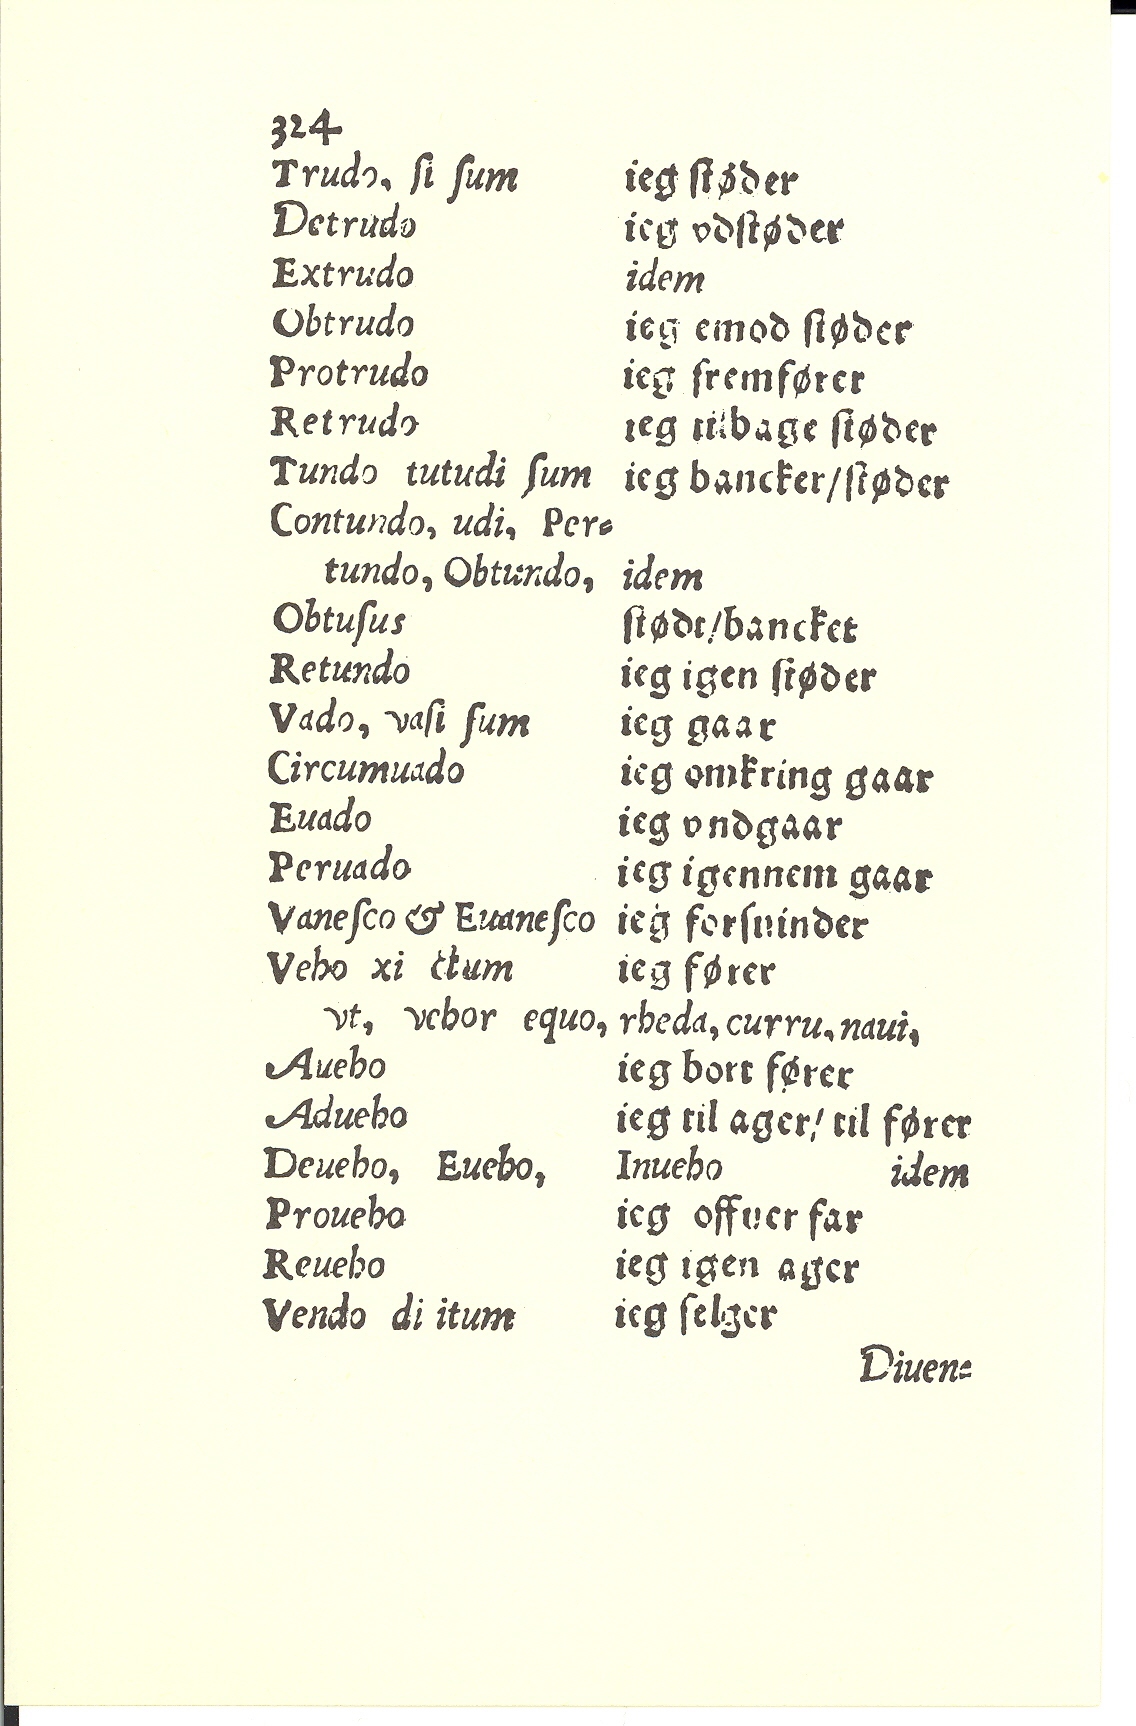 324
Trudo, ſi ſum ieg ſtøder
Detrudo ieg vdſtøder
Extrudo idem
Obtrudo ieg emod ſtøder
Protrudo ieg fremfører
Retrudo ieg tilbage ſtøder
Tundo tutudi ſum ieg bancker/ſtøder
Contundo, udi, Per⸗
tundo, Obtundo, idem
Obtuſus ſtødt/bancket
Retundo ieg igen ſtøder
Vado, vaſi ſum ieg gaar
Circumuado ieg omkring gaar
Euado ieg vndgaar
Peruado ieg igennem gaar
Vaneſco & Euaneſco ieg forſuinder
Veho xi ctum ieg fører
vt, vehor equo, rheda, curru, naui,
Aueho ieg bort fører
Adueho ieg til ager/ til fører
Deueho, Eueho, Inueho idem
Proueho ieg offuer far
Reueho ieg igen ager
Vendo di itum ieg ſelger
Diuen⸗